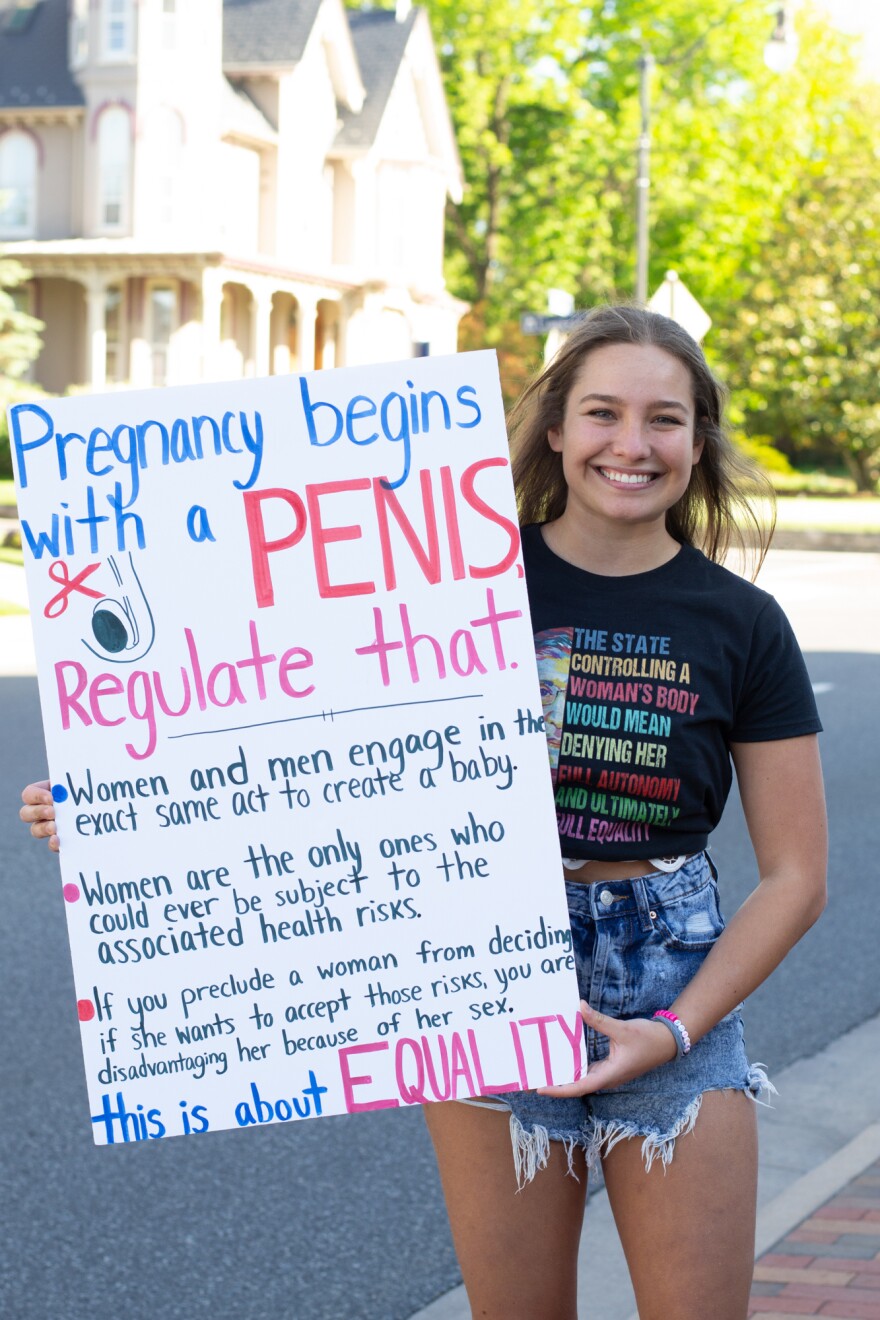 Pregnancy begins
with a PENIS,
Regulate that.
Women and men engage in the
exact same act to create a baby.
Women are the only ones who
could ever be subject to the
associated health risks.
If you preclude a woman from deciding
if she wants to accept those risks, you are
disadvantaging her because of her sex.
this is about EQUALITY
THE STATE
CONTROLLING A
WOMAN'S BODY
WOULD MEAN
DENYING HER
FULL AUTONOMY
AND ULTIMATELY
FULL EQUALITY